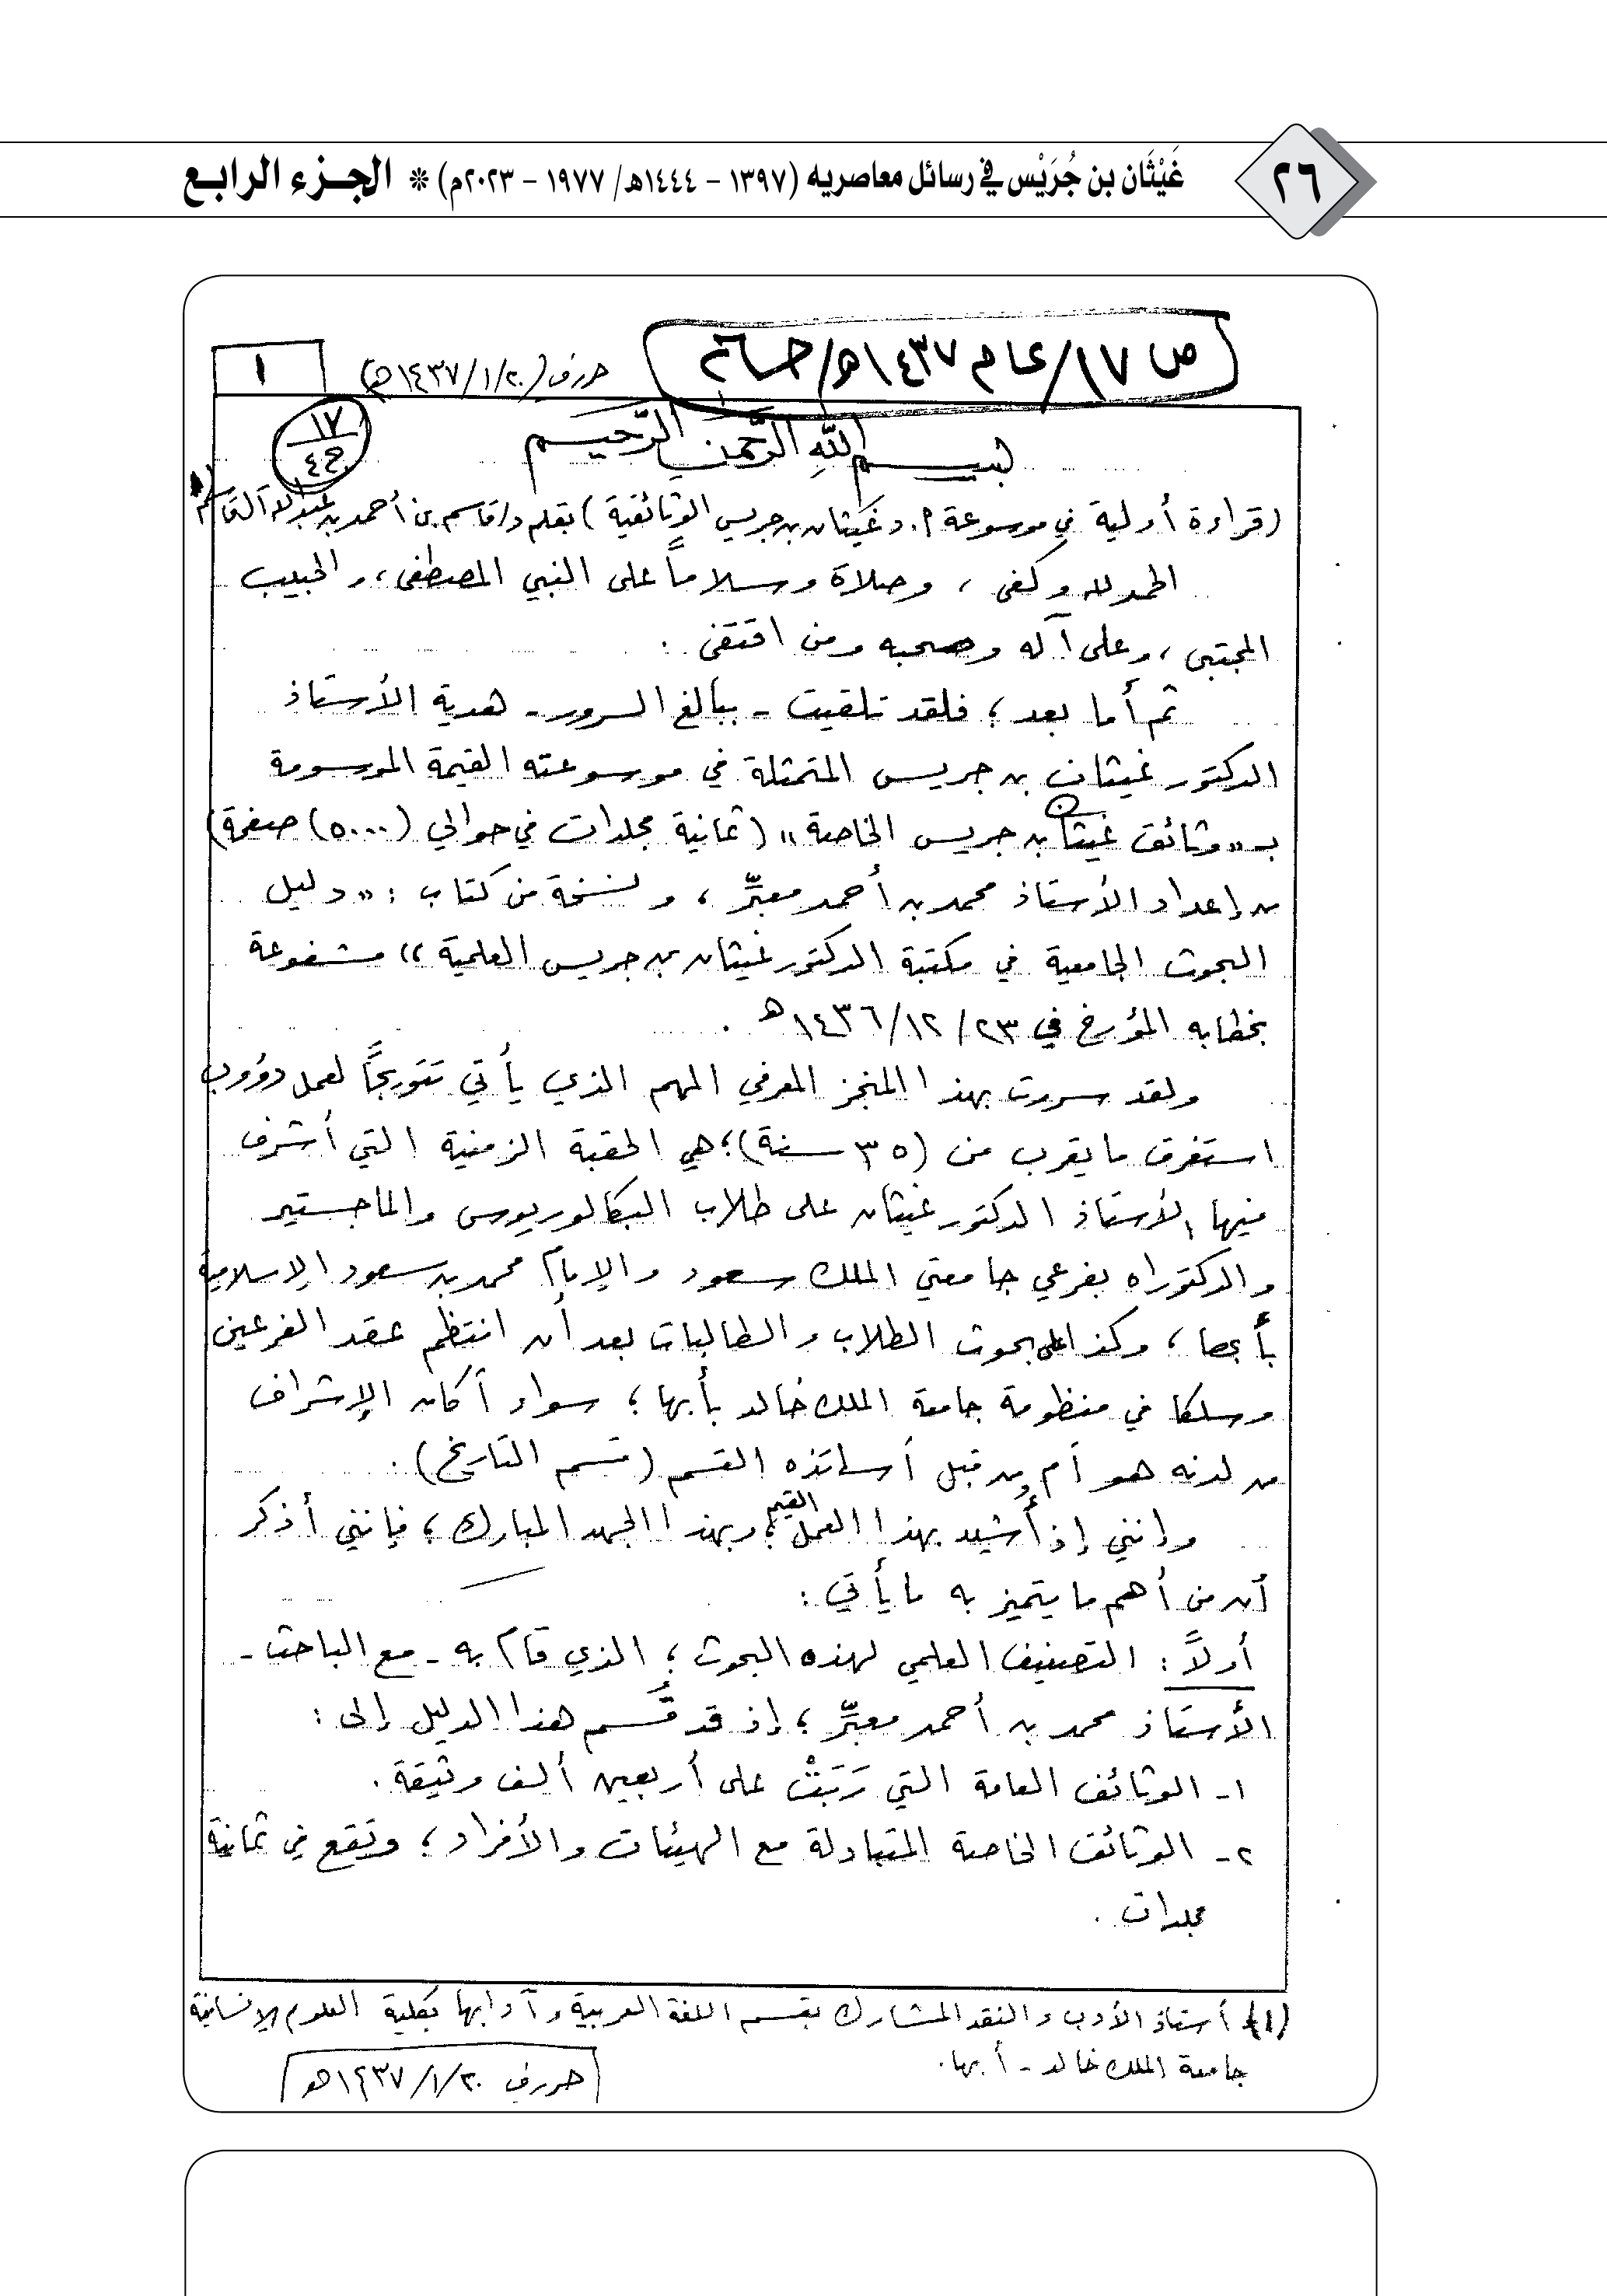 ٢٦
غَيْثَان بن جُرَيْس في رسائل معاصريه (١٣٩٧ - ١٤٤٤هـ/ ١٩٧٧ - ٢٠٢٣م) * الجزء الرابع
ص ١٧/ عام ١٤٣٧هـ/
حرر في (١٤٣٧/١/٢٠هـ)
١
١٧
ج٤
بسم الله الرحمن الرحيم
(قراءة أولية في موسوعة أ.د غيثان بن جريس الوثائقية) بقلم د/ قاسم بن أحمد بن عبدالله آل قاسم (١)
الحمد لله وكفى ، وصلاة وسلاماً على النبي المصطفى ، والحبيب
المجتبى ، وعلى آله وصحبه ومن اقتفى .
ثم أما بعد ؛ فلقد تلقيت - ببالغ السرور - هدية الأستاذ
الدكتور غيثان بن جريس المتمثلة في موسوعته القيمة الموسومة
بـ "وثائق غيثان بن جريس الخاصة" (ثمانية مجلدات في حوالي (٥٠٠٠) صفحة)
من إعداد الأستاذ محمد بن أحمد معبِّر ، ونسخة من كتاب : "دليل
البحوث الجامعية في مكتبة الدكتور غيثان بن جريس العلمية" مشفوعة
بخطابه المؤرخ في ٢٣/ ١٢/ ١٤٣٦هـ .
ولقد سررت بهذا المنجز المعرفي المهم الذي يأتي تتويجًا لعمل دؤوب
استغرق ما يقرب من (٣٥ سنة) ؛ هي الحقبة الزمنية التي أشرف
فيها الأستاذ الدكتور غيثان على طلاب البكالوريوس والماجستير
والدكتوراه بفرعي جامعتي الملك سعود والإمام محمد بن سعود الإسلامية
بأبها ، وكذا على بحوث الطلاب والطالبات بعد أن انتظم عقد الفرعين
وسلكا في منظومة جامعة الملك خالد بأبها ؛ سواء أكان الإشراف
من لدنه هو أم من قبل أساتذه القسم (قسم التاريخ) .
وإنني إذ أشيد بهذا العمل القيم ؛ وبهذا الجهد المبارك ؛ فإنني أذكر
أن من أهم ما يتميز به ما يأتي :
أولاً : التصنيف العلمي لهذه البحوث ؛ الذي قام به - مع الباحث -
الأستاذ محمد بن أحمد معبِّر ؛ إذ قد قُسم هذا الدليل إلى :
١- الوثائق العامة التي رَبَتْ على أربعين ألف وثيقة .
٢- الوثائق الخاصة المتبادلة مع الهيئات والأفراد ؛ وتقع في ثمانية
مجلدات .
(١) أستاذ الأدب والنقد المشارك بقسم اللغة العربية وآدابها بكلية العلوم الإنسانية
جامعة الملك خالد - أبها .
حرر في ١٤٣٧/١/٢٠هـ